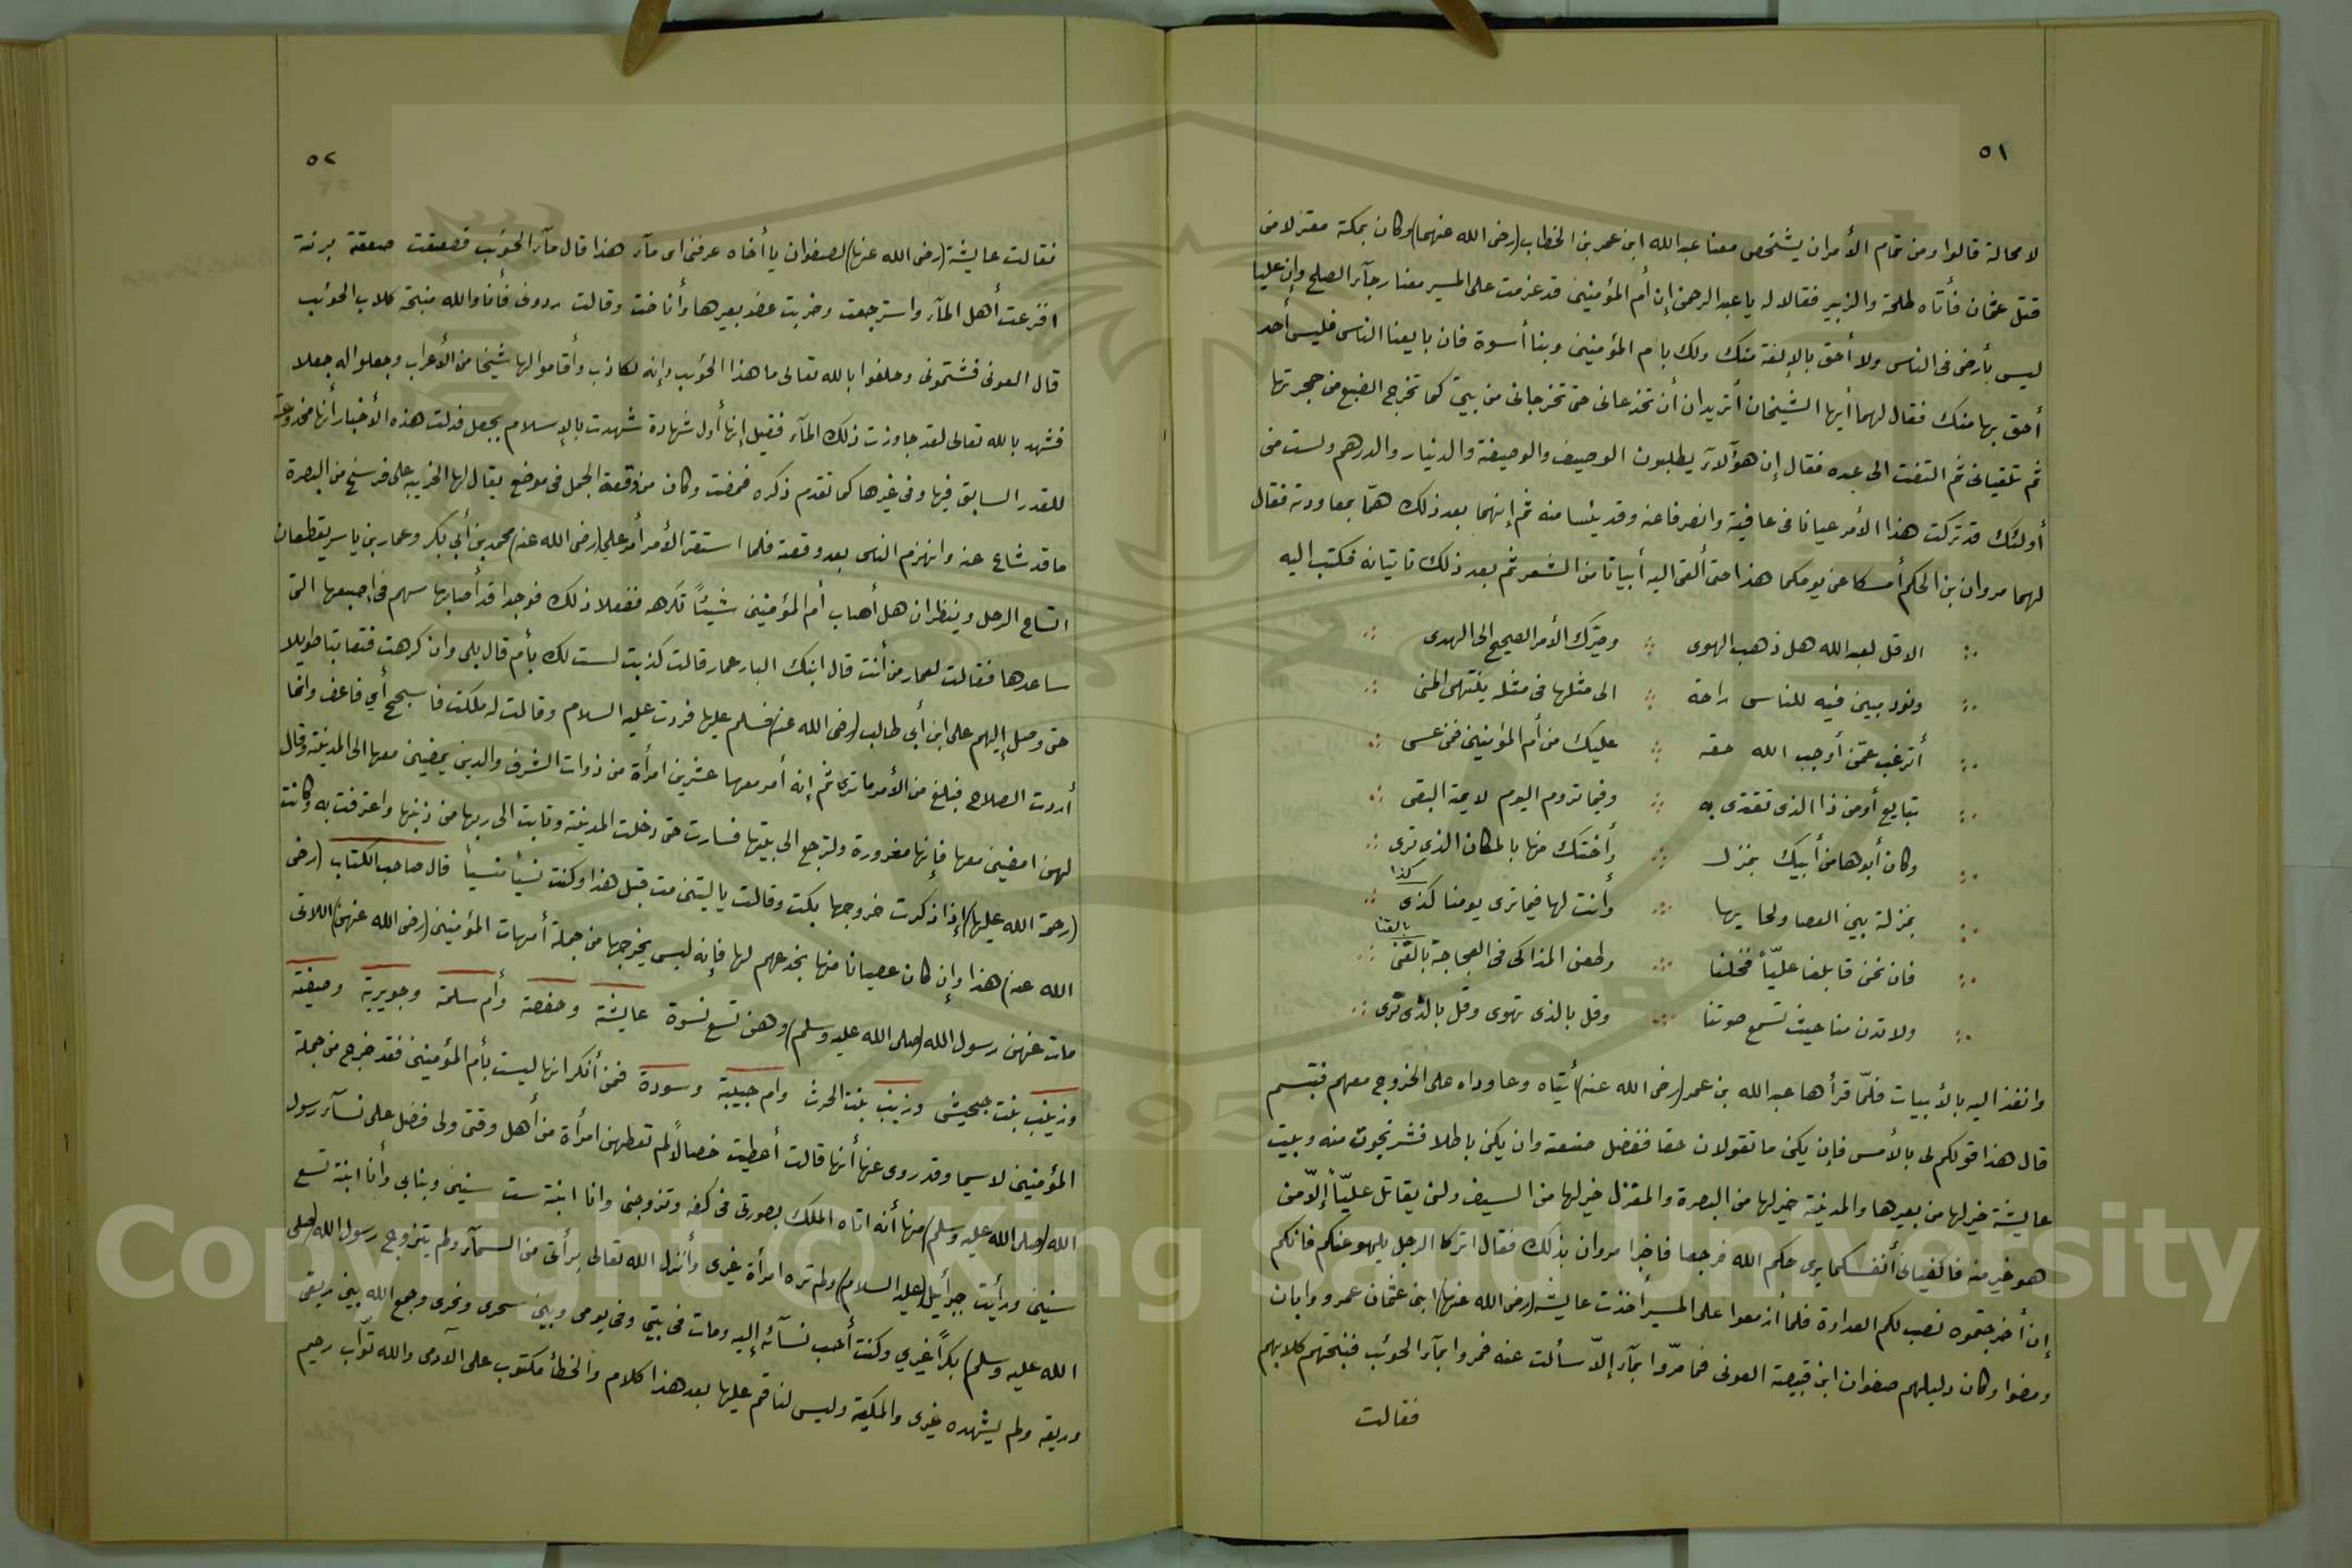 ٥١
لا محالة قالوا ومن تمام الأمر ان يشخص معنا عبد الله ابن عمر بن الخطاب (رضى الله عنهما) وكان بمكة معتزلا من
قتل عثمان فأتاه طلحة والزبير فقالا له يا عبد الرحمن إن أم المؤمنين قد عزمت على المسير معنا رجآء الصلح وإن عليا
ليس بأرضى فى الناس ولا أحق بالإلفة منك ولك بام المؤمنين وبنا أسوة فان بايعنا الناس فليس أحد
أحق بها منك فقال لهما أيها الشيخان أتريدان أن تخدعانى حتى تخرجانى من بيتى كما تخرج الضبع من حجرتها
ثم تلقيانى ثم التفت الى عبده فقال إن هؤلآء يطلبون الوصيف والوصيفة والدنيار والدرهم ولست من
أولئك قد تركت هذا الأمر عيانا فى عافية وانصرفا عنه وقد يئسا منه ثم إنهما بعد ذلك همّا بمعاودته فقال
لهما مروان بن الحكم أمسكا عن يومكما هذا حتى ألقى اليه أبياتا من الشعر ثم بعد ذلك تاتيانه فكتب اليه
الا قل لعبد الله هل ذهب الهوى ∴ وحيّرك الأمر الصحيح الى الهدى
ونود بين فيه للناس راحة ∴ الى مثلها فى مثله ينتهى المنى
أترغب عمّن أوجب الله حقه ∴ عليك من أم المؤمنين فمن عسى
بتابع أو من ذا الذى تقتدى به ∴ وفيما تروم اليوم لايمة البقى
وكان أبوها من أبيك بمنزل ∴ وأختك منها بالمكان الذى ترى
كذا
بمنزلة بين العصا ولحايها ∴ وأنت لها فيما ترى يومنا كذى
بالقنا
فان نحن قابلنا عليّاً فخلنا ∴ وطعن المذاكى فى العجاجة بالقنى
ولا تدن منا حيث تسمع صوتنا ∴ وقل بالذى تهوى وقل بالذى ترى
وانفذ اليه بالأبيات فلمّا قرأها عبد الله بن عمر (رضى الله عنه) أتياه وعاوداه على الخروج معهم فتبسم
قال هذا قولكم لى بالأمس فإن يكن ما تقولان حقا ففضل صنعته وان يكن باطلا فشر نجوت منه وبيت
عايشة خير لها من بعيرها والمدينة خير لها من البصرة والمغزل خير لها من السيف ولن يقاتل عليّاً إلّا من
هو خير منه فاكفيانى أنفسكما يرى حكم الله فرجعا فاخبرا مروان بذلك فقال اتركا الرجل يلهو عنكم فانكم
إن أخرجتموه نصب لكم العداوة فلما أزمعوا على المسير أخذت عايشه (رضى الله عنها) ابنى عثمان عمرو وابان
ومضوا وكان دليلهم صفوان ابن قبيصة العونى فما مرّوا بمآء إلّا سألت عنه فمروا بمآء الحوئب فنبحتهم كلابهم
فقالت
٥٢
فقالت عايشة (رضى الله عنها) لصفوان يا أخاه عرفنى اى مآء هذا قال مآء الحوئب فصعقت صعقة برنة
افزعت أهل المآء واسترجعت وضربت عضد بعيرها وأناخت وقالت ردونى فأنا والله منبحة كلاب الحوئب
قال العونى فشتمونى وحلفوا بالله تعالى ما هذا الحوئب وإنه لكاذب وأقاموا لها شيخا من الأعراب وجعلوا له جعلا
فشهد بالله تعالى لقد جاوزت ذلك المآء فقيل إنها أول شهادة شهدت بالإسلام بجعل فدلت هذه الأخبار أنها مخدوعة
للقدر السابق فيها وفى غيرها كما تقدم ذكره فمضت وكان من وقعة الجمل فى موضع يقال لها الخريبه على فرسخ من البصرة
ما قد شاع عنه وانهزم الناس بعد وقعة فلما استقر الأمر أمر علي (رضى الله عنه) محمد بن أبي بكر وعمار بن ياسر يقطعان
انساع الرحل وينظران هل أصاب أم المؤمنين شيئاً تكرهه ففعلا ذلك فوجدا قد أصابها سهم فى إصبعها التى
ساعدها فقالت لعمار من أنت قال ابنك البار عمار قالت كذبت لست لك بأم قال بلى وان كرهت فتعاتبا طويلا
حتى وصل إليهم على ابن أبى طالب (رضى الله عنه) فسلم عليها فردت عليه السلام وقالت له ملكت فاسجح أي فاعف وانما
أردت الصلاح فبلغ من الأمر ما ترى ثم إنه أمر معها عشرين امرأة من ذوات الشرف والدين يمضين معها الى المدينة وقال
لهن امضين معها فإنها مغرورة ولترجع الى بيتها فسارت حتى دخلت المدينة وتابت الى ربها من ذنبها واعترفت به وكانت
(رحمة الله عليها) إذا ذكرت خروجها بكت وقالت يا ليتنى مت قبل هذا وكنت نسيأ منسيأ قال صاحب الكتاب (رضى
الله عنه) هذا وإن كان عصيانا منها بخدعهم لها فإنه ليس يخرجها من جملة أمهات المؤمنين (رضى الله عنهن) اللاتى
مات عنهن رسول الله (صلى الله عليه وسلم) وهن تسع نسوة عايشة وحفصة وأم سلمة وجويرية وصفية
وزينب بنت جحيش وزينب بنت الحرث وام حبيبة وسودة فمن أنكر انها ليست بأم المؤمنين فقد خرج من جملة
المؤمنين لاسيما وقد روى عنها أنها قالت أعطيت خصالاً لم تعطهن امرأة من أهل وقتى ولى فضل على نسآء رسول
الله (صلى الله عليه وسلم) منها أنه اتاه الملك بصورتى فى كفه وتزوجنى وانا ابنة ست سنين وبنابى وأنا ابنة تسع
سنين ورأيت جبرأيل (عليه السلام) ولم تره امرأة غيرى وأنزل الله تعالى برأتى من السمآء ولم يتزوج رسول الله (صلى
الله عليه وسلم) بكراً غيري وكنت أحب نسآئه إليه ومات فى بيتى وفى يومى وبين سحرى ونحرى وجمع الله بين ريقى
وريقه ولم يشهده غيرى والمكية وليس لنا قم عليها بعد هذا كلام والخطأ مكتوب على الآدمى والله توّاب رحيم
Copyright © King Saud University